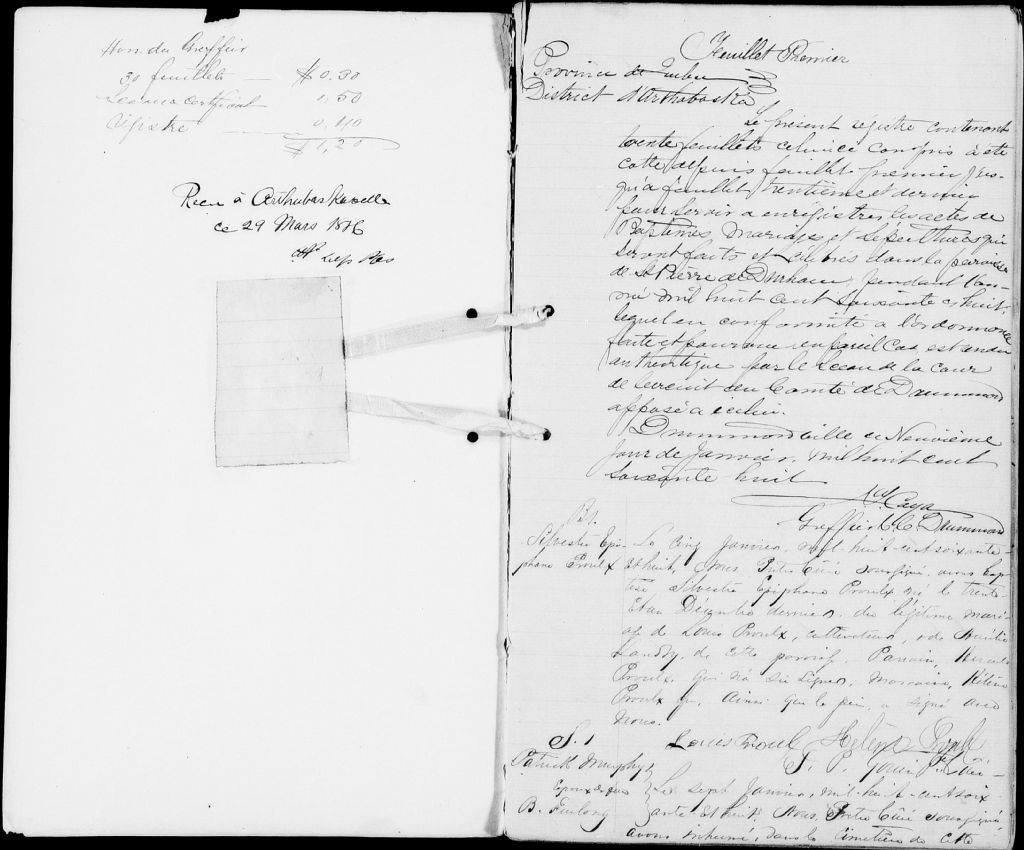 Hon. du Greffier
30 feuillets — $0.30
Sceau & certificat 0,50
Registre — 0,40
$1,20
à Arthabaskaville
ce 29 Mars
Feuillet Premier
Province de Québec
District d'Arthabaska
Le présent registre contenant
trente feuillets celui-ci compris a été
cotté depuis feuillet premier jus-
qu'à feuillet trentième et dernier
pour servir a enrégistrer les actes de
Baptêmes, Mariages et Sépultures qui
seront faits et célébrés dans la paroisse
de St Pierre de Durham, pendant l'an-
née mil huit cent soixante & huit.
lequel en conformité a l'ordonnance
faite et pourvue en pareil cas est rendu
authentique par le Sceau de la Cour
de Circuit du Comté de Drummond
apposé a icelui.
Drummondville ce Neuvième
jour de Janvier, mil huit cent
soixante huit
Caya
Greffier C. C. Drummond
B1.
Silvestre Epi-
phane Proulx
Le cinq Janvier, mil-huit-cent-soixante-
et-huit, Nous Prêtre Curé soussigné, avons bap-
tisé Silvestre Epiphane Proulx né le trente-
et-un Décembre dernier, du légitime mari-
age de Louis Proulx, cultivateur, & de
Landry, de cette paroisse. Parrain,
Proulx, qui n'a su signer, marraine, Hélène
Proulx qui, ainsi que le père, a signé avec
Nous.
Louis Proul Hélène
S. 1
Patrick Murphy
Epoux de feue
B. Furlong
Le sept Janvier, mil-huit-cent-soix-
ante-et-huit, Nous, Prêtre Curé soussigné
avons inhumé, dans le cimetière de cette